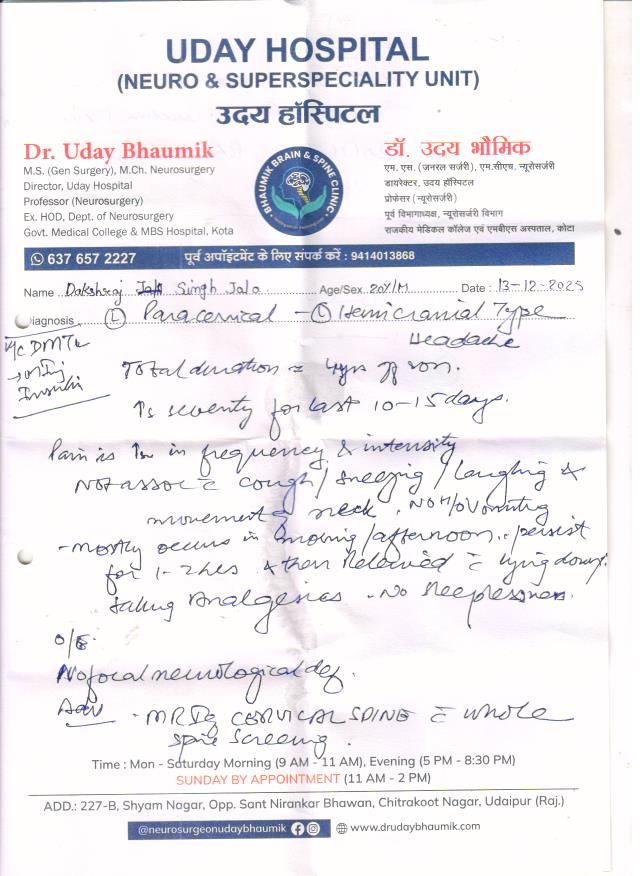 UDAY HOSPITAL
(NEURO & SUPERSPECIALITY UNIT)
उदय हॉस्पिटल
Dr. Uday Bhaumik
M.S. (Gen Surgery), M.Ch. Neurosurgery
Director, Uday Hospital
Professor (Neurosurgery)
Ex. HOD, Dept. of Neurosurgery
Govt. Medical College & MBS Hospital, Kota
BHAUMIK BRAIN & SPINE CLINIC
डॉ. उदय भौमिक
एम. एस. (जनरल सर्जरी), एम.सीएच. न्यूरोसर्जरी
डायरेक्टर, उदय हॉस्पिटल
प्रोफेसर (न्यूरोसर्जरी)
पूर्व विभागाध्यक्ष, न्यूरोसर्जरी विभाग
राजकीय मेडिकल कॉलेज एवं एमबीएस अस्पताल, कोटा
637 657 2227 पूर्व अपॉइंटमेंट के लिए संपर्क करें : 9414013868
Name Dakshraj Singh Jala Age/Sex 20Y/M Date : 13-12-2025
iagnosis (L) - (L) Hemicranial Type
Headache
DM
Insulin
Total duration = 4yrs
severity for last 10-15 days.
Pain is in frequency & intensity
Not assoc c̄ cough/sneezing/laughing &
movement neck. No H/O Vomiting
- mostly occurs in /afternoon. persist
for 1-2 hrs & then Relieved c̄ lying down.
taking analgesics. No sleeplessness.
O/E:
No focal neurological def.
Adv - MRI CERVICAL SPINE c̄ whole
spine screening.
Time : Mon - Saturday Morning (9 AM - 11 AM), Evening (5 PM - 8:30 PM)
SUNDAY BY APPOINTMENT (11 AM - 2 PM)
ADD.: 227-B, Shyam Nagar, Opp. Sant Nirankar Bhawan, Chitrakoot Nagar, Udaipur (Raj.)
@neurosurgeonudaybhaumik www.drudaybhaumik.com